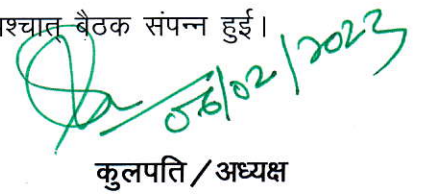 श्चात् बैठक संपन्न हुई।
06/02/2023
कुलपति / अध्यक्ष